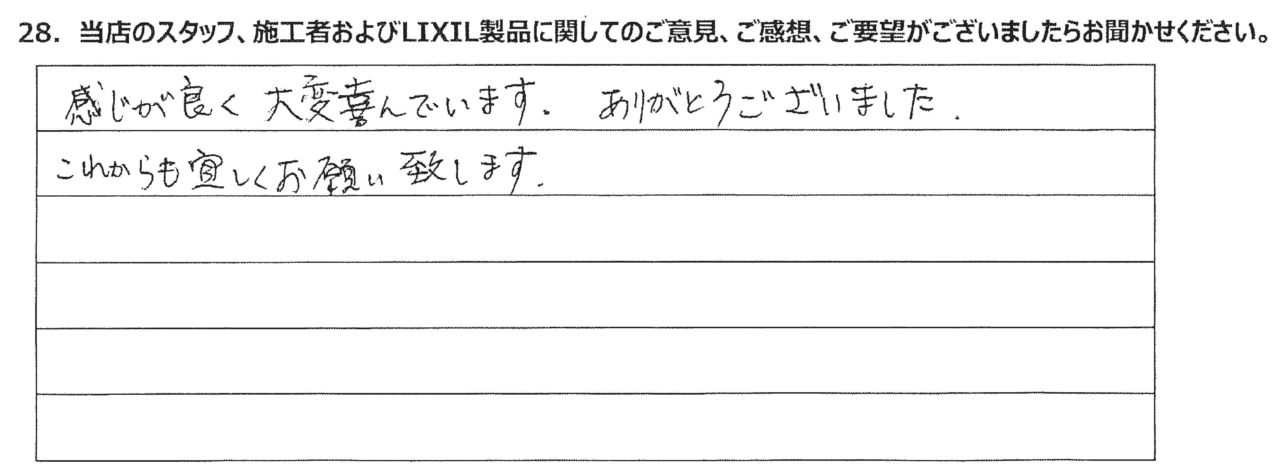 28. 当店のスタッフ、施工者およびLIXIL製品に関してのご意見、ご感想、ご要望がございましたらお聞かせください。
感じが良く 大変喜んでいます. ありがとうございました.
これからも宜しくお願い致します.